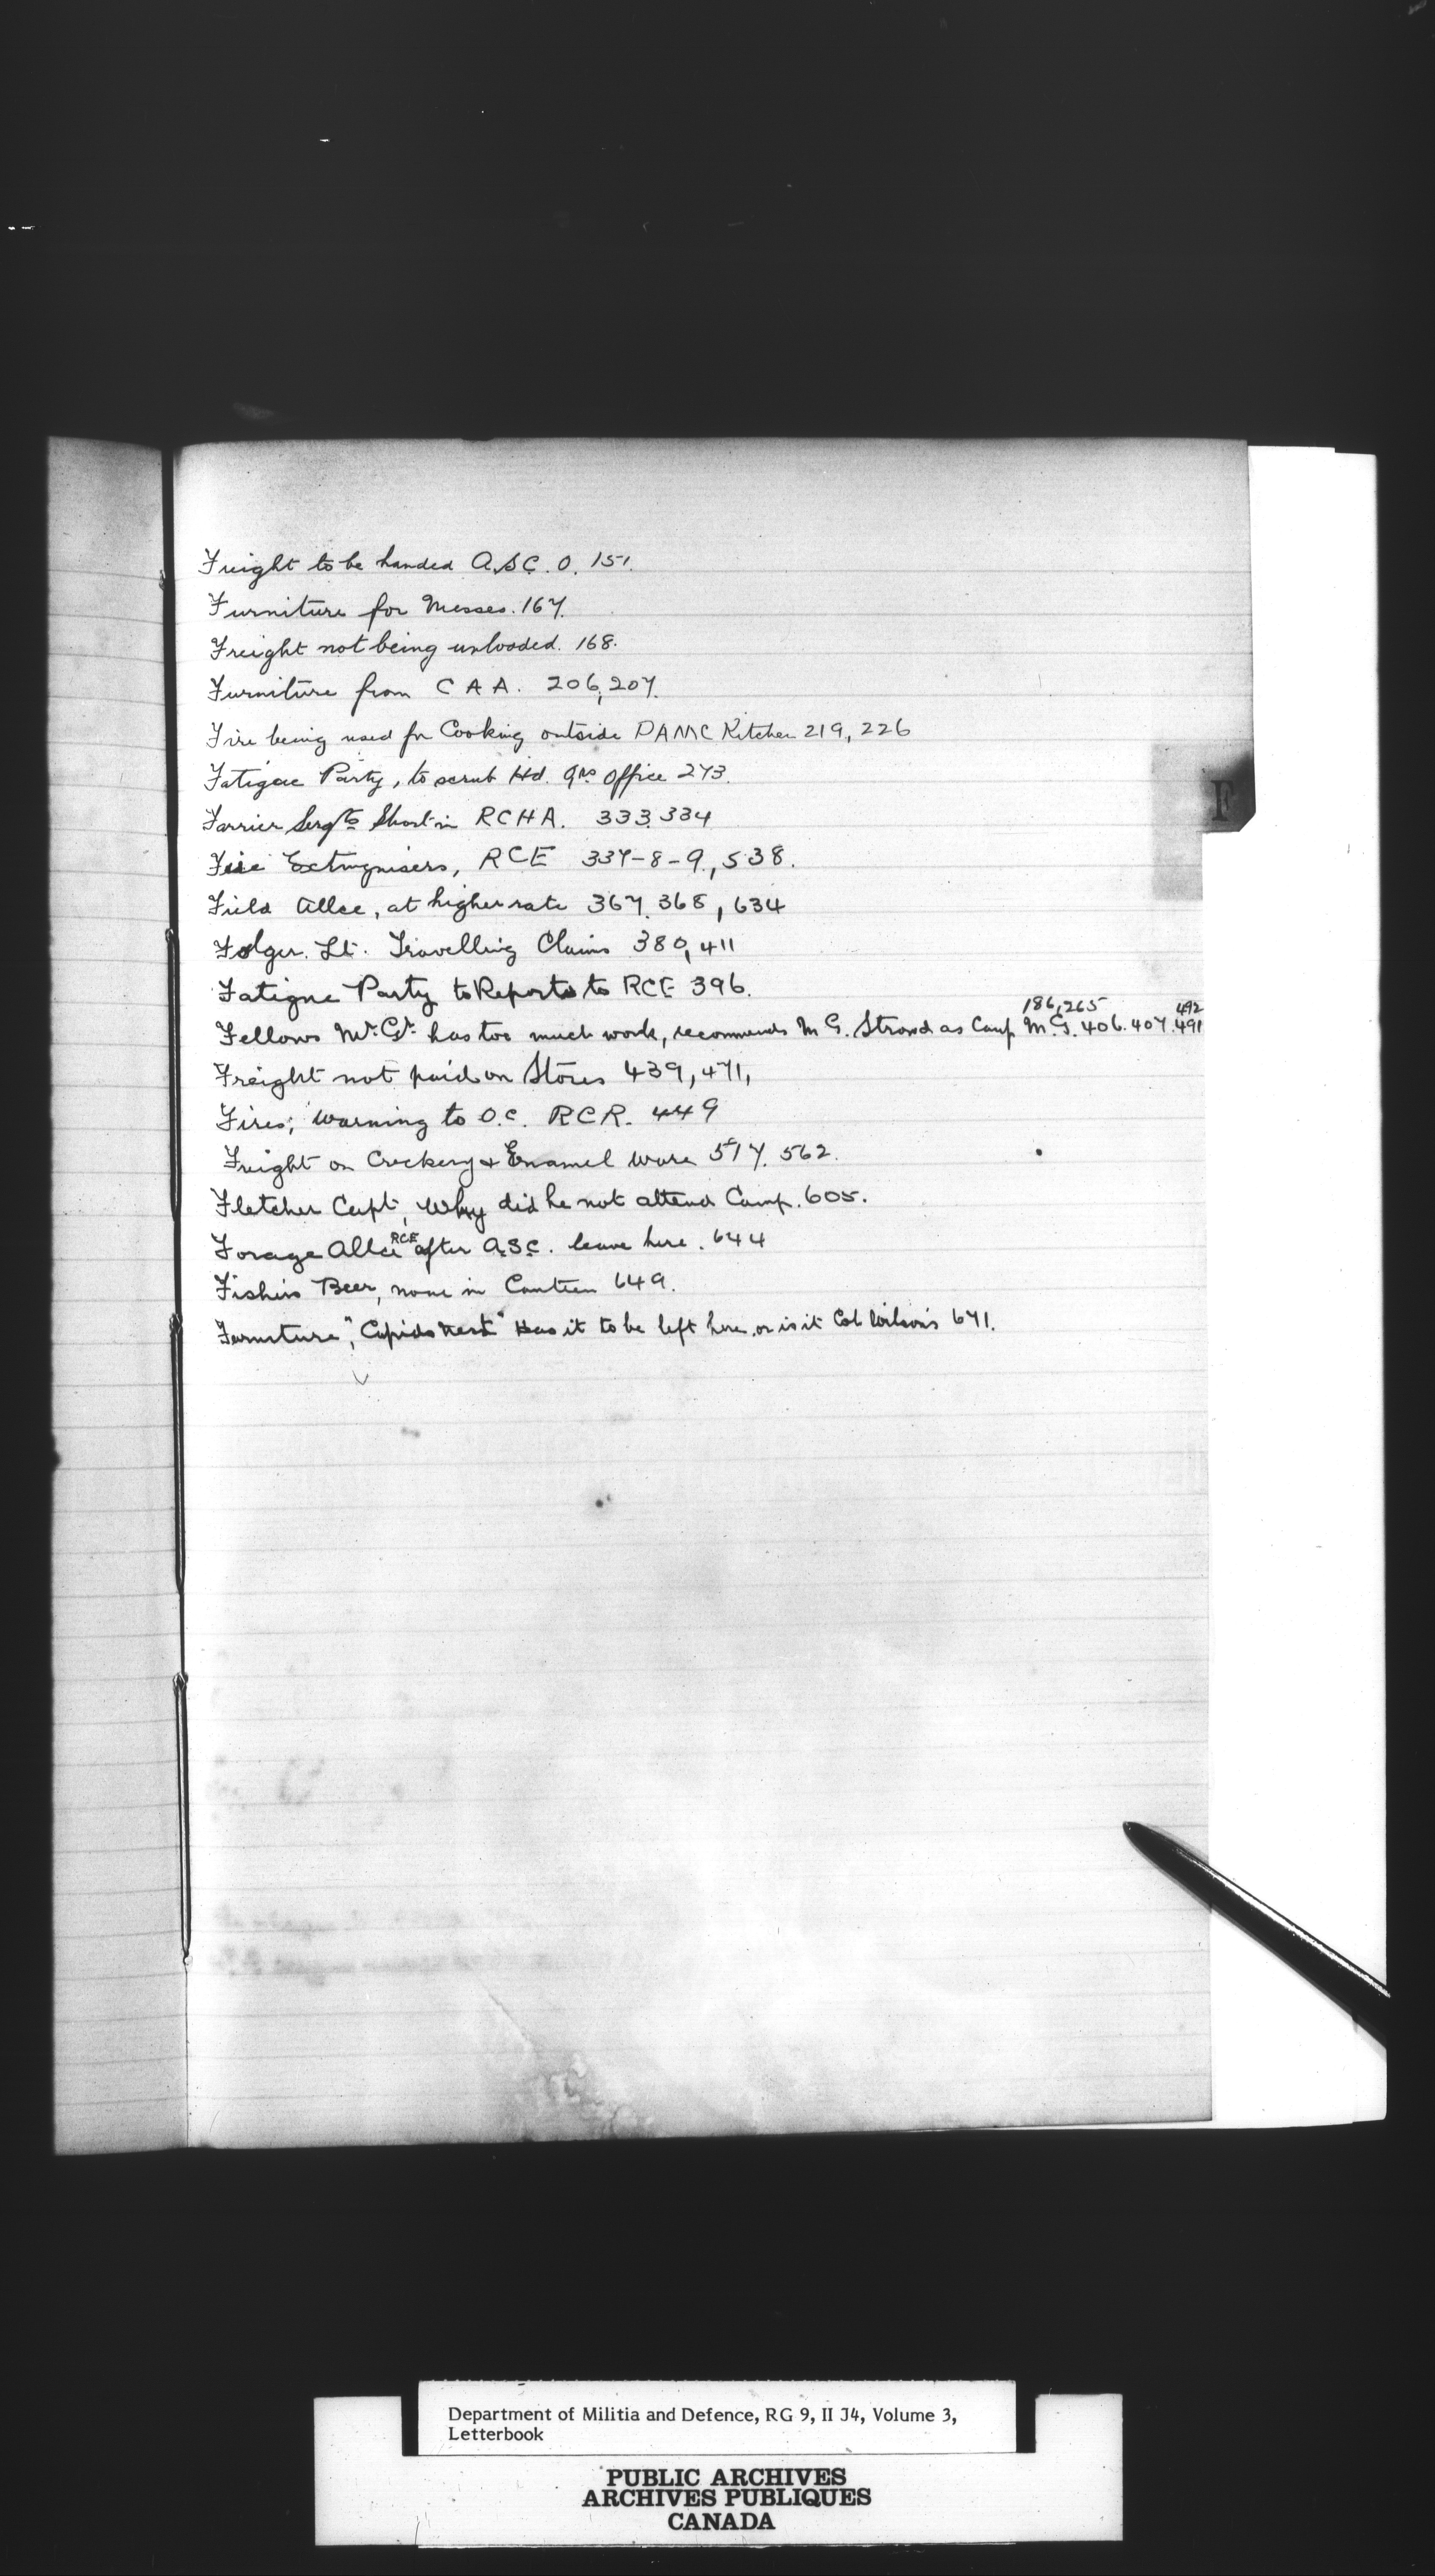 Freight to be handed A.S.C. O. 151.
Furniture for Messes. 167.
Freight not being unloaded. 168.
Furniture from C A A. 206, 207.
Fire being used for Cooking outside PAMC Kitchen 219, 226
Fatigue Party, to scrub Hd. Qrs Office 273.
F
Farrier Sergts Short in RCHA. 333. 334
Fire Extinguisers, RCE 337-8-9, 538.
Field Allce, at higher rate 367. 368, 634
Folger. Lt. Travelling Claims 380, 411
Fatigue Party to Report to RCE 396.
186, 265 492
Fellows Mr. Gr. has too much work, recommends M G. Strond as Camp M.G. 406. 407. 491
Freight not paid on Stores 439, 471,
Fires; warning to O.C. RCR. 449
Freight on Crockery & Enamel Ware 517. 562.
Fletcher Capt, Why did he not attend Camp. 605.
Forage Allce RCE after A.S.C. leave here. 644
Beer, none in Canteen 649.
Furniture, "Cupids nest" Has it to be left here or is it Col Wilson's 671.
Department of Militia and Defence, RG 9, II J4, Volume 3,
Letterbook
PUBLIC ARCHIVES
ARCHIVES PUBLIQUES
CANADA